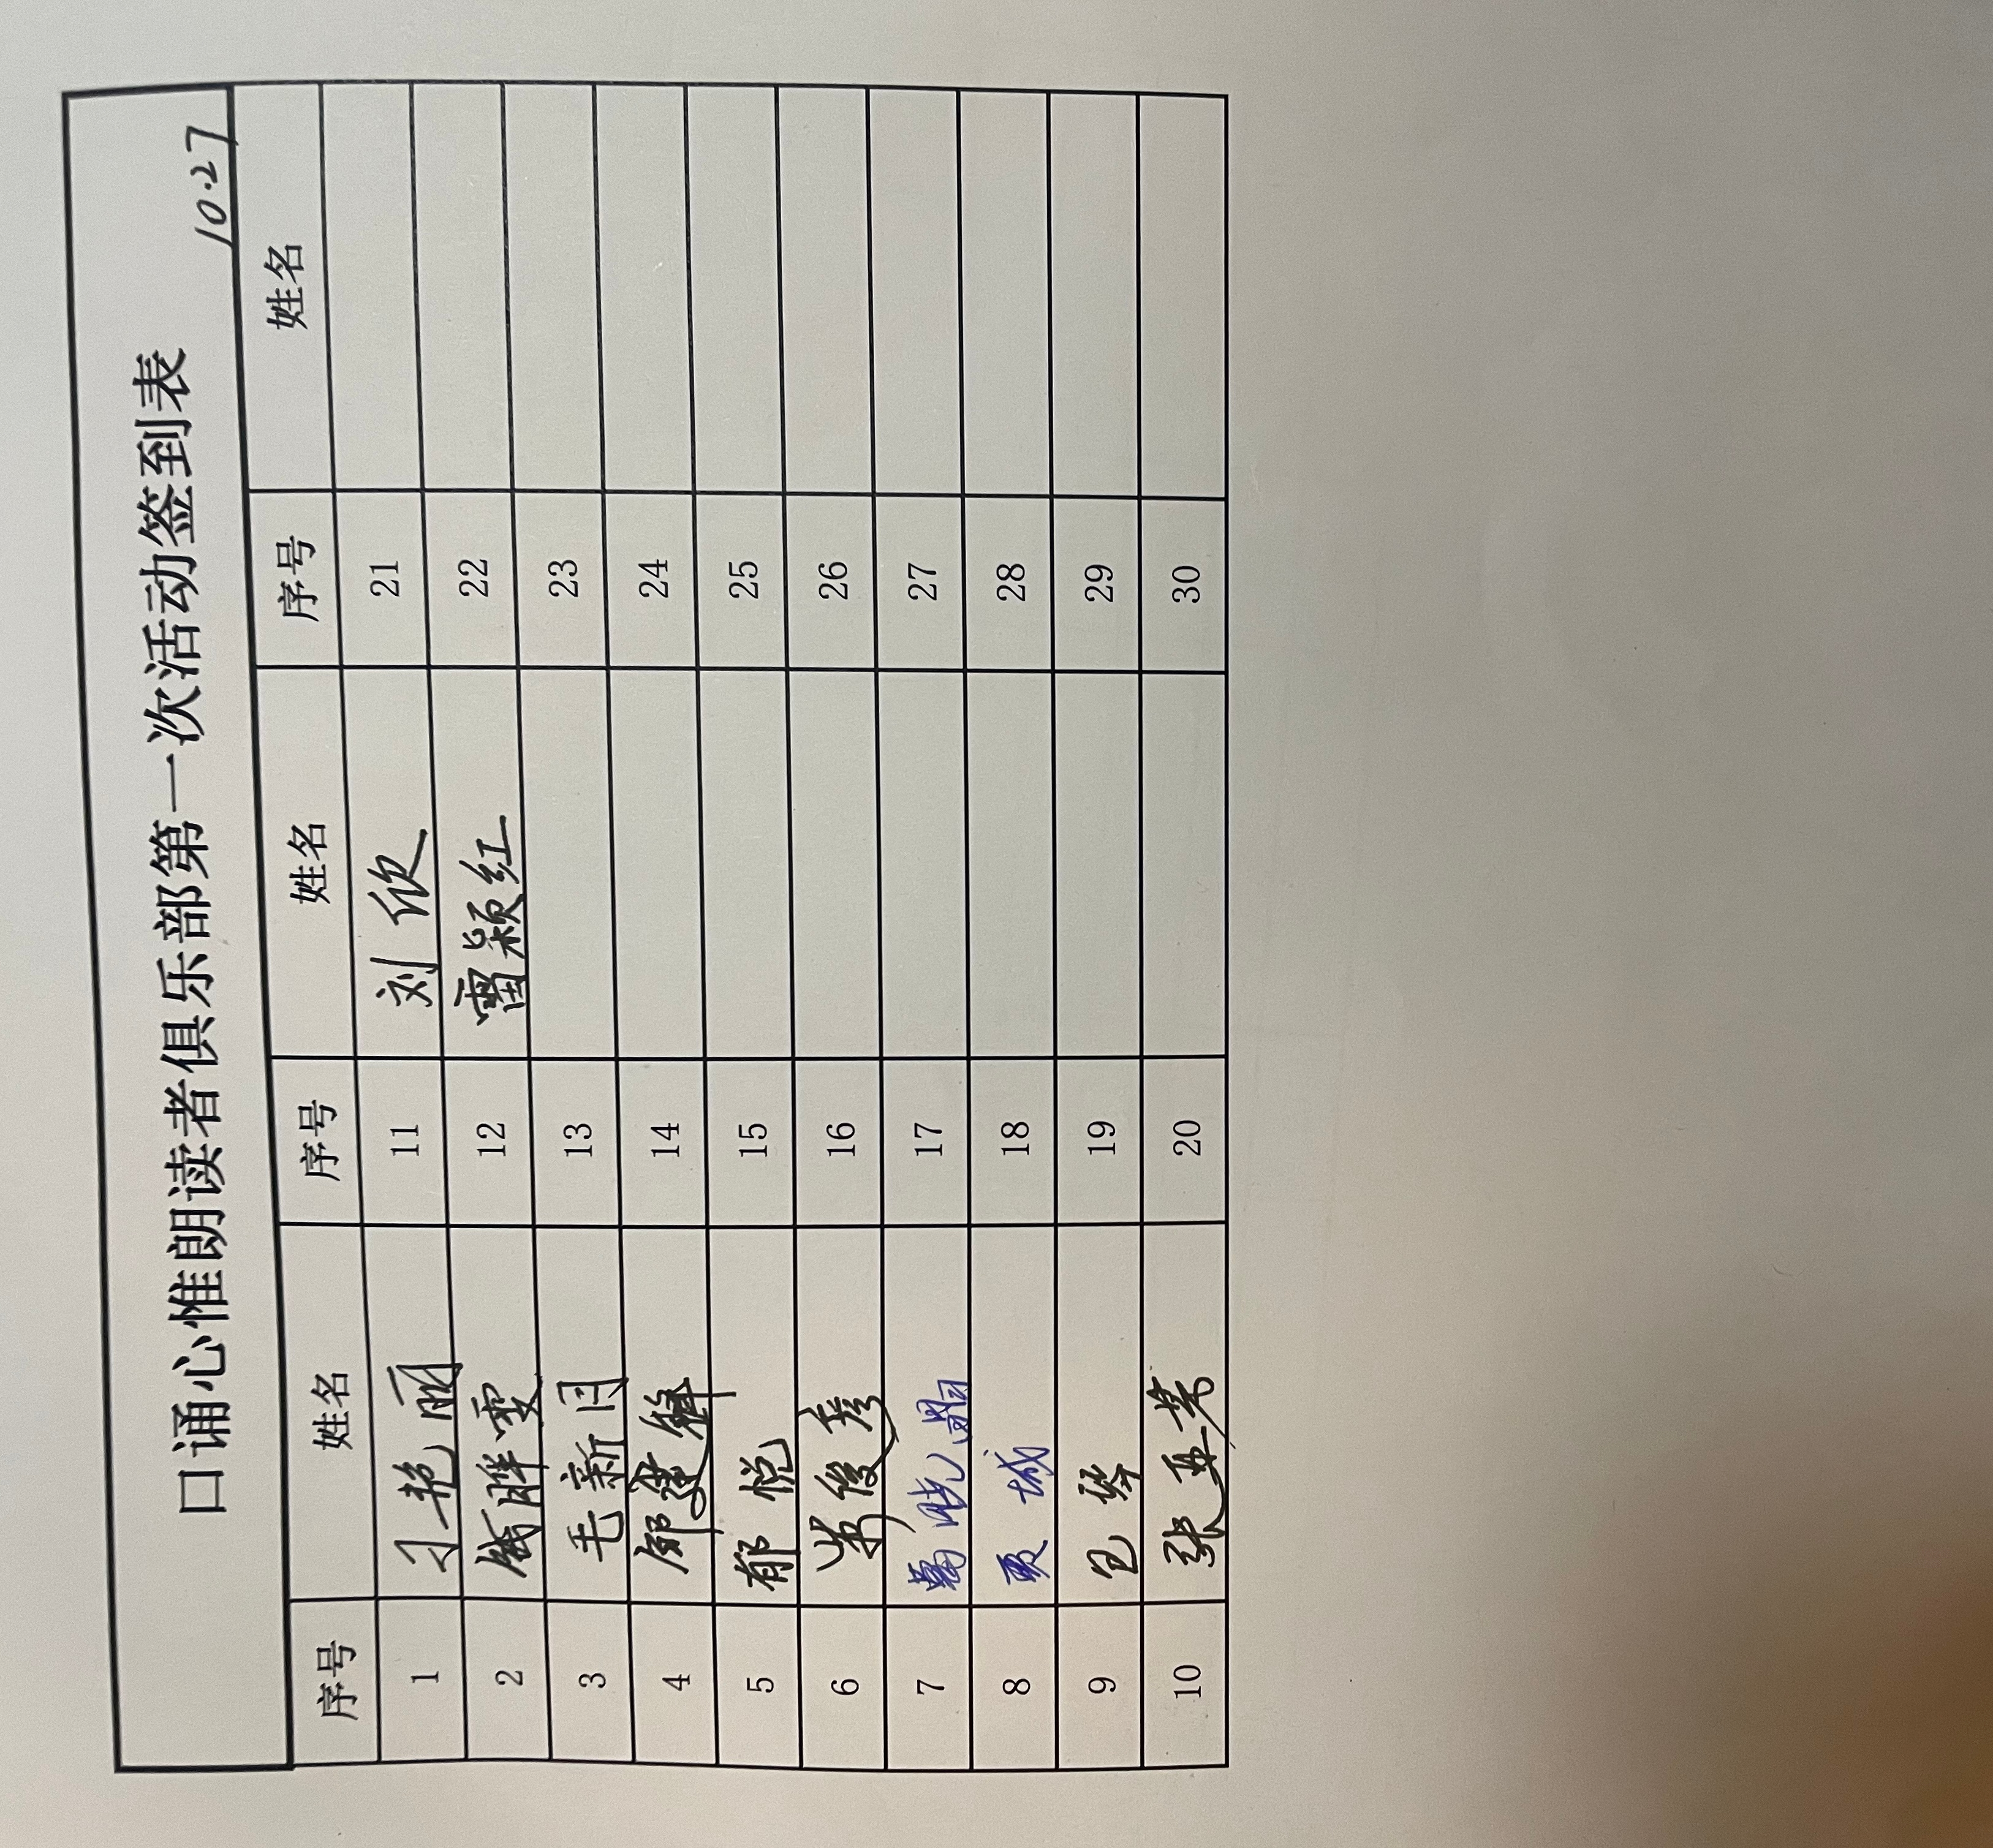 口诵心惟朗读者俱乐部第一次活动签到表
10.27
序号 姓名 序号 姓名 序号 姓名
1 刁艳丽 11 刘欣 21
2 钱胖雯 12 雷颖红 22
3 毛新月 13 23
4 14 24
5 郁悦 15 25
6 柴俊彦 16 26
7 葛晓 17 27
8 贾城 18 28
9 19 29
10 张亚芳 20 30